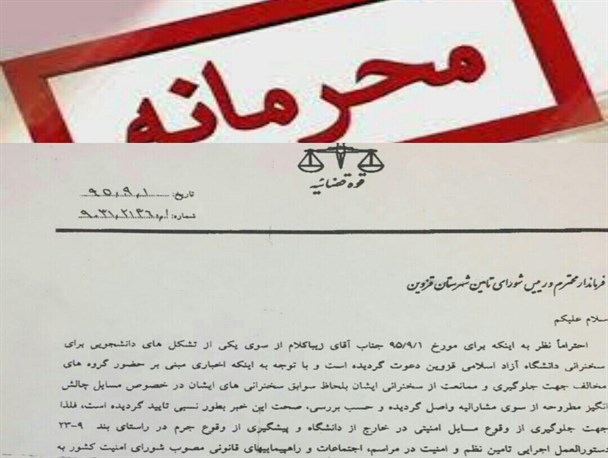 محرمانه
قوه قضائیه
تاریخ: ۹۵،۹،۱
شماره:
فرماندار محترم و رییس شورای تامین شهرستان قزوین
سلام علیکم
احتراماً نظر به اینکه برای مورخ ۹۵/۹/۱ جناب آقای زیباکلام از سوی یکی از تشکل های دانشجویی برای
سخنرانی دانشگاه آزاد اسلامی قزوین دعوت گردیده است و با توجه به اینکه اخباری مبنی بر حضور گروه های
مخالف جهت جلوگیری و ممانعت از سخنرانی ایشان بلحاظ سوابق سخنرانی های ایشان در خصوص مسایل چالش
انگیز مطروحه از سوی مشارالیه واصل گردیده و حسب بررسی، صحت این خبر بطور نسبی تایید گردیده است، فلذا
جهت جلوگیری از وقوع مسایل امنیتی در خارج از دانشگاه و پیشگیری از وقوع جرم در راستای بند ۹-۲۳
دستورالعمل اجرایی تامین نظم و امنیت در مراسم، اجتماعات و راهپیماییهای قانونی مصوب شورای امنیت کشور به